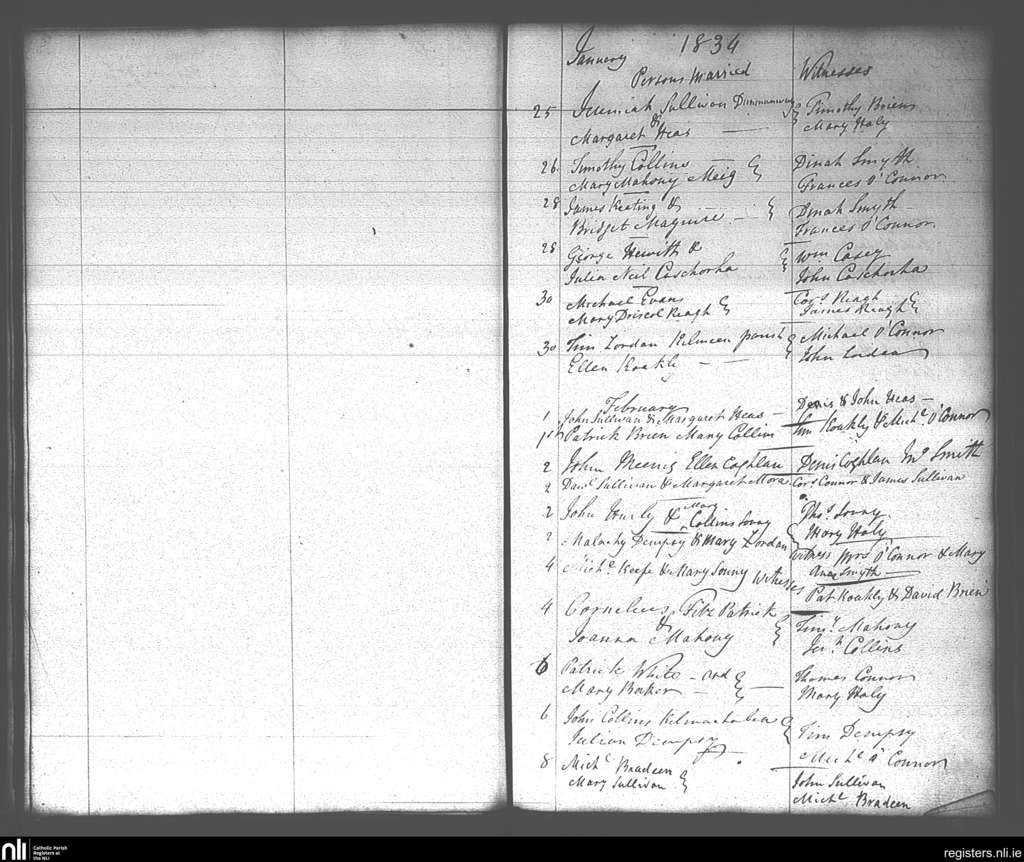 January 1834
Persons Married Witnesses
25 Jeremiah Sullivan Dunmanway Timothy Brien
& Margaret Heas Mary Haly
26 Timothy Collins Dinah Smyth
Mary Mahony Meig Frances O'Connor
28 James Keeting & Dinah Smyth
Bridget Maguire Frances O'Connor
28 George Hewitt & Wm Casey
Julia Neil Caschorha John Caschorha
30 Michael Evans Cors Reagh
Mary Driscol Reagh James Reagh
30 Tim Lordan Kilmeen parish Michael O'Connor
Ellen Koakly John Lordan
February
1 John Sullivan & Margaret Heas Denis & John Heas
1st Patrick Brien Mary Collins Tim Koakly & Michl O'Connor
2 John Meenig Ellen Coghlan Denis Coghlan Smith
2 Danl Sullivan & Margaret Mora Cors Connor & James Sullivan
2 John Hurly & Mary Collins Sonny Thos Sonny
Mary Haly
2 Malachy Dempsy & Mary Lordan Witness Mrs O'Connor & Mary
Smyth
4 Michl Keefe & Mary Sonny Witnesses Pat Koakly & David Brien
4 Cornelius Fitz Patrick Timy Mahony
& Joanna Mahony Collins
6 Patrick White and Thomas Connor
Mary Barker Mary Haly
6 John Collins Tim Dempsy
Julian Dempsy Michl O'Connor
8 Michl Bradeen John Sullivan
Mary Sullivan Michl Bradeen
nli Catholic Parish
Registers at
the NLI
registers.nli.ie